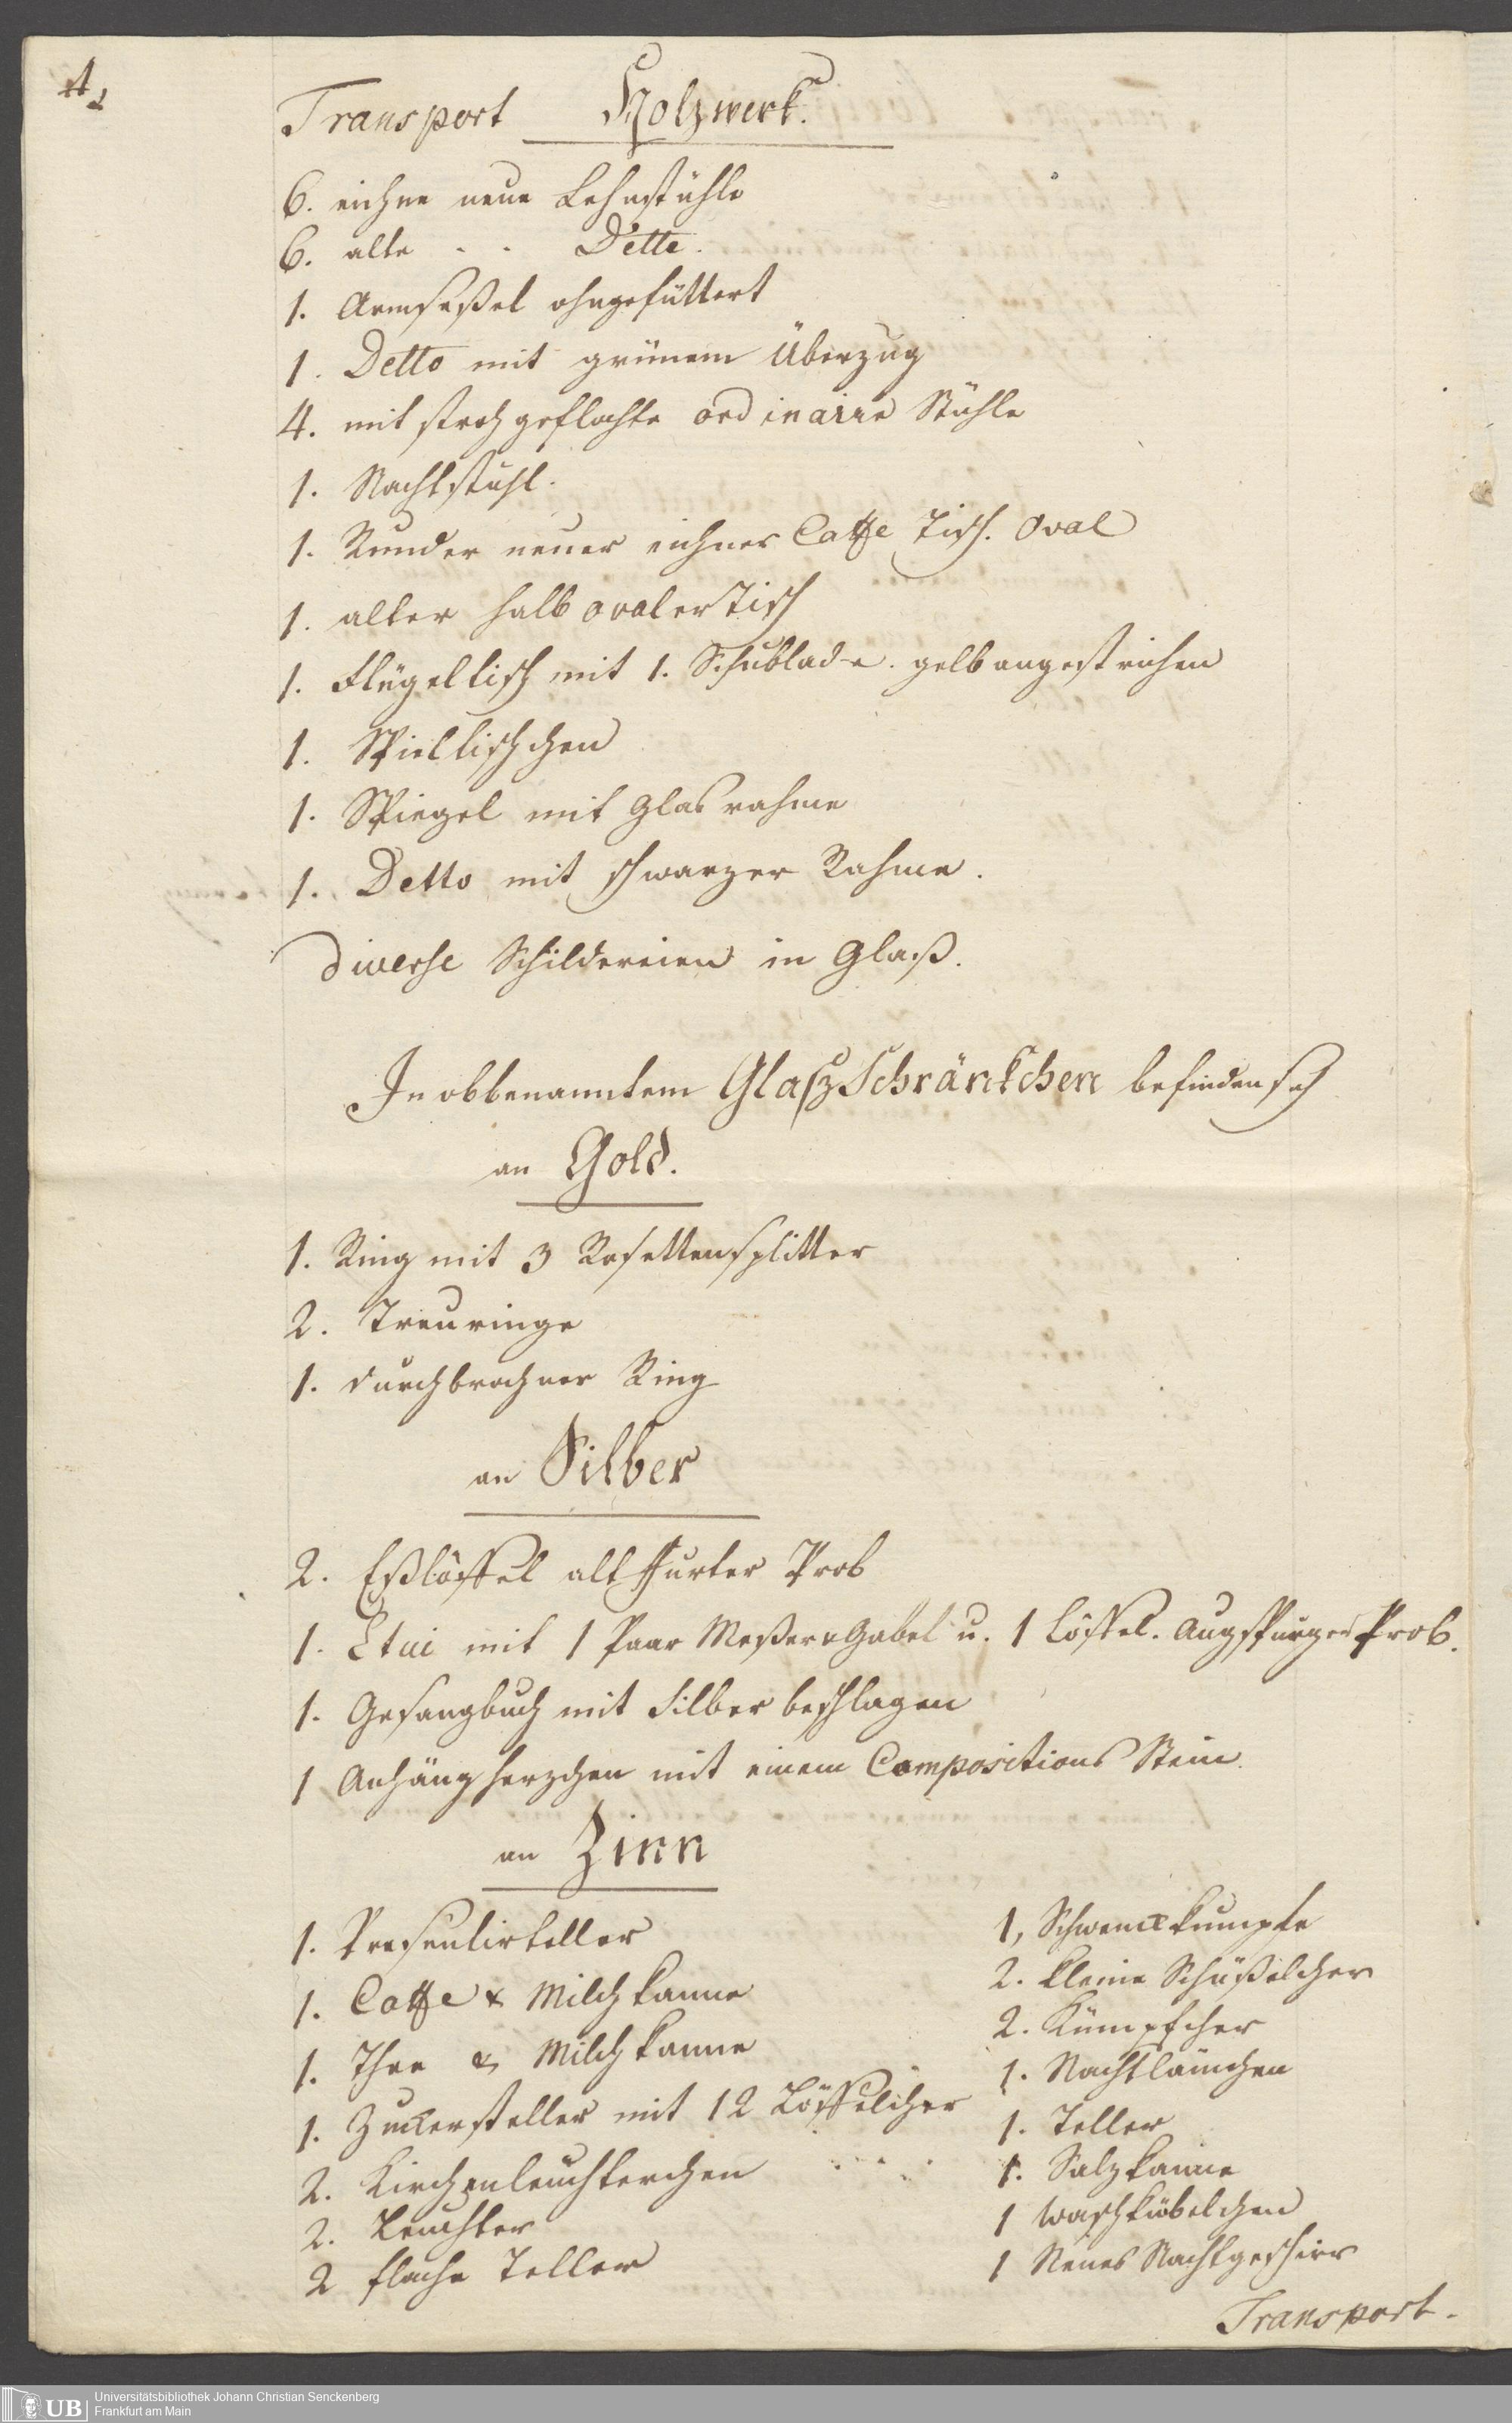 4.
Transport Holzwerk.
6. eichne neue Lehnstühle
6. alte - - Dette.
1. Armseßel ohngefüttert
1. Detto mit grünem Überzug
4. mit stroh geflochte ordinaire Stühle
1. Nachtstuhl.
1. Runder neuer eichner Caffe Tisch. Oval
1. alter halb ovaler Tisch
1. Flügeltisch mit 1. Schublade. gelb angestrichen
1. Spieltischchen
1. Spiegel mit Glas rahme
1. Detto mit schwarzer Rahme.
diverse Schildereien in Glaß.
In obbenanntem GlaszSchränkchen befinden sich
an Gold.
1. Ring mit 3 Rosettensplitter
2. Treuringe
1. durchbrochner Ring
an Silber
2. Eßlöffel alt ffurter Prob
1. Etui mit 1 Paar Meßer & Gabel u. 1 Löffel. Augspurger Prob.
1. Gesangbuch mit Silber beschlagen
1 Anhäng herzchen mit einem Compositions Stein.
an Zinn
1. Presentirteller
1. Caffe & Milchkanne
1. Thee & Milchkanne
1. Zuckersteller mit 12 Löffelcher
2. Kirchenleuchterchen
2. Leuchter
2 flache Teller
1, Schwenckkumpfe
2. kleine Schüßelcher
2. Kümpfcher
1. Nachtlämchen
1. Teller
1. Salzkanne
1 Waschkübelchen
1 Neues Nachtgeschirr
Transport.
UB
Universitätsbibliothek Johann Christian Senckenberg
Frankfurt am Main